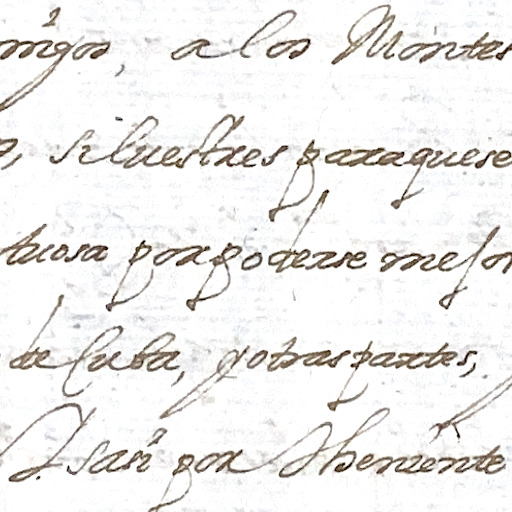 migos, a los Montes
siluestres paraquese
tuosa porpoderse mejor
de Cuba, y otras partes,
por theniente